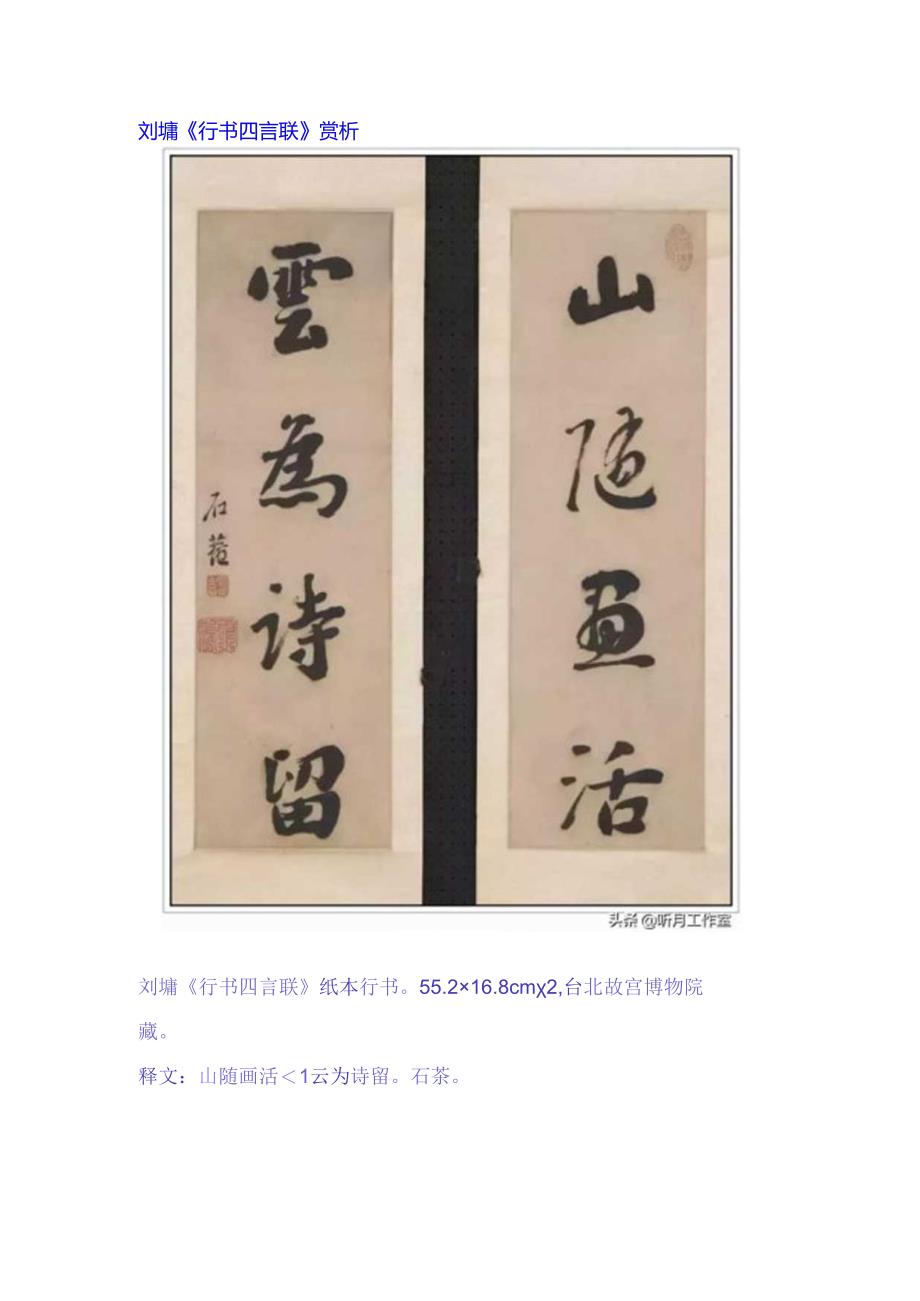 刘墉《行书四言联》赏析
山随画活
雲為詩留
石菴
头条@听月工作室
刘墉《行书四言联》纸本行书。55.2×16.8cmχ2,台北故宫博物院
藏。
释文：山随画活＜1云为诗留。石茶。